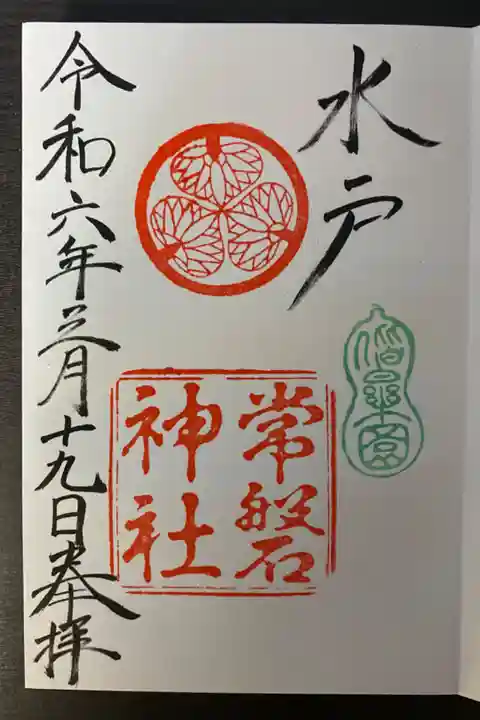 水戸
常磐
神社
偕楽園
令和六年三月十九日奉拝